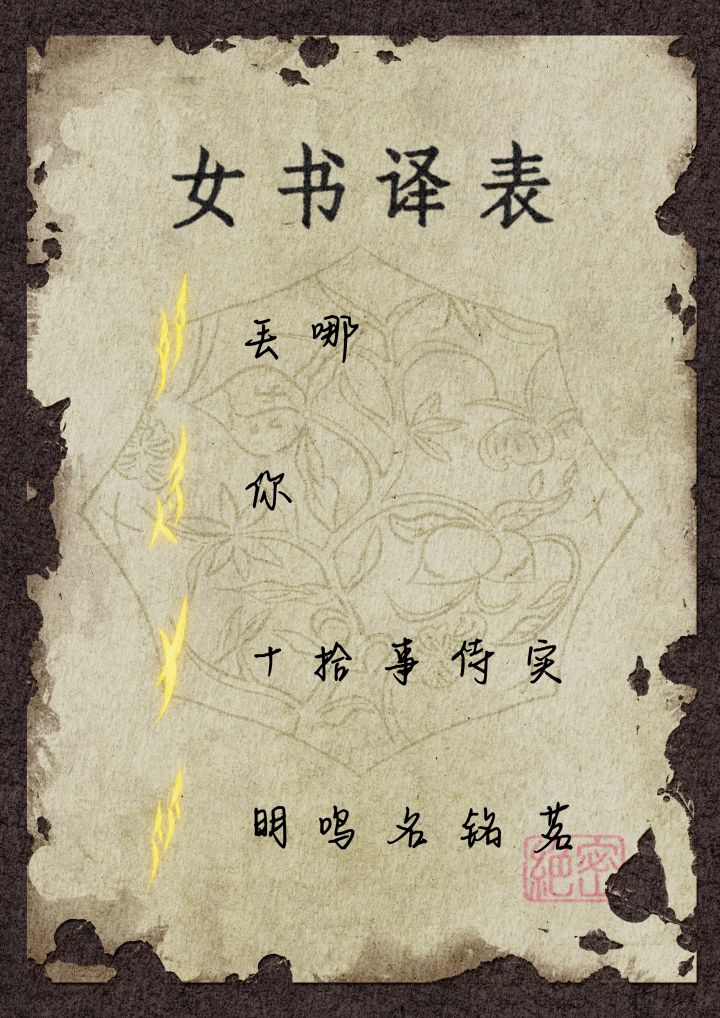 女书译表
丢哪
你
十拾事侍实
明鸣名铭茗
绝密